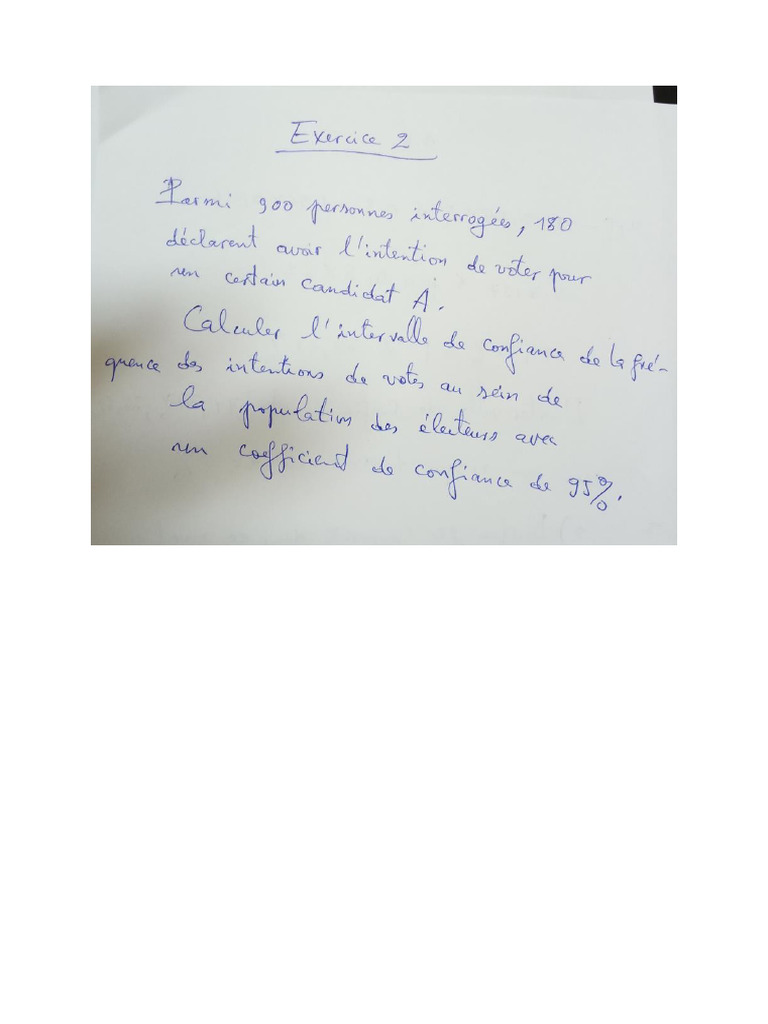 Exercice 2
Parmi 900 personnes interrogées, 180
déclarent avoir l'intention de voter pour
un certain candidat A.
Calculer l'intervalle de confiance de la fré-
quence des intentions de votes au sein de
la population des électeurs avec
un coefficient de confiance de 95%.